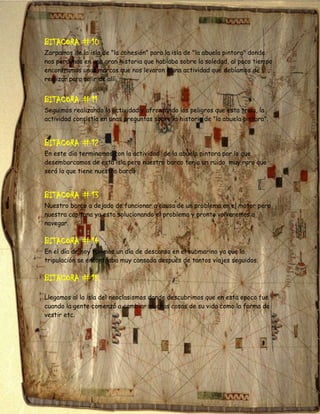 BITACORA # 10
Zarpamos de la isla de "la cohesión" para la isla de "la abuela pintora" donde
nos perdimos en una gran historia que hablaba sobre la soledad, al poco tiempo
encontramos unas marcas que nos llevaron a una actividad que debíamos de
realizar para salir de allí.
BITACORA # 11
Seguimos realizando la actividad y afrontando los peligros que esta traía, la
actividad consistía en unas preguntas sobre la historia de "la abuela pintora".
BITACORA # 12
En este día terminamos con la actividad de la abuela pintora por lo que
desembarcamos de esta isla pero nuestro barco tenía un ruido muy raro que
será lo que tiene nuestro barco
BITACORA # 13
Nuestro barco a dejado de funcionar a causa de un problema en el motor pero
nuestra capitana ya esta solucionando el problema y pronto volveremos a
navegar.
BITACORA # 14
En el día de hoy tuvimos un día de descanso en el submarino ya que la
tripulación se encontraba muy cansada después de tantos viajes seguidos.
BITACORA # 15
Llegamos al la isla del neoclasismos donde descubrimos que en esta época fue
cuando la gente comenzó a cambiar cosas de su vida como la forma de
vestir etc.